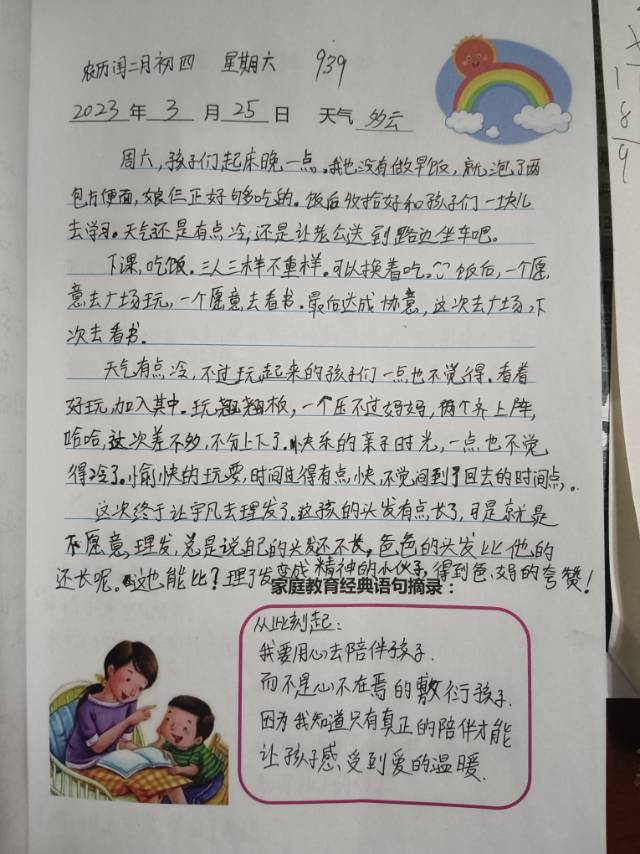 农历闰二月初四 星期六 939
2023 年 3 月 25 日 天气 多云
周六,孩子们起床晚一点。我也没有做早饭,就泡了两
包方便面,娘仨正好够吃的。饭后收拾好和孩子们一块儿
去学习。天气还是有点冷,还是让老公送到路边坐车吧。
下课,吃饭。三人三样不重样。可以换着吃。饭后,一个愿
意去广场玩,一个愿意去看书。最后达成协意,这次去广场,下
次去看书。
天气有点冷,不过玩起来的孩子们一点也不觉得。看着
好玩,加入其中。玩翘翘板,一个压不过妈妈,两个齐上阵,
哈哈,这次差不多,不分上下了。快乐的亲子时光,一点也不觉
得冷了。愉快的玩耍,时间过得有点快,不觉间到了回去的时间点。
这次终于让宇凡去理发了。这孩的头发有点长了,可是就是
不愿意理发,总是说自己的头发还不长,爸爸的头发比他的
还长呢。这也能比?理了发变成精神的小伙子,得到爸、妈的夸赞!
家庭教育经典语句摘录:
从此刻起:
我要用心去陪伴孩子.
而不是心不在焉的敷衍孩子.
因为我知道只有真正的陪伴才能
让孩子感受到爱的温暖.
1
8
9